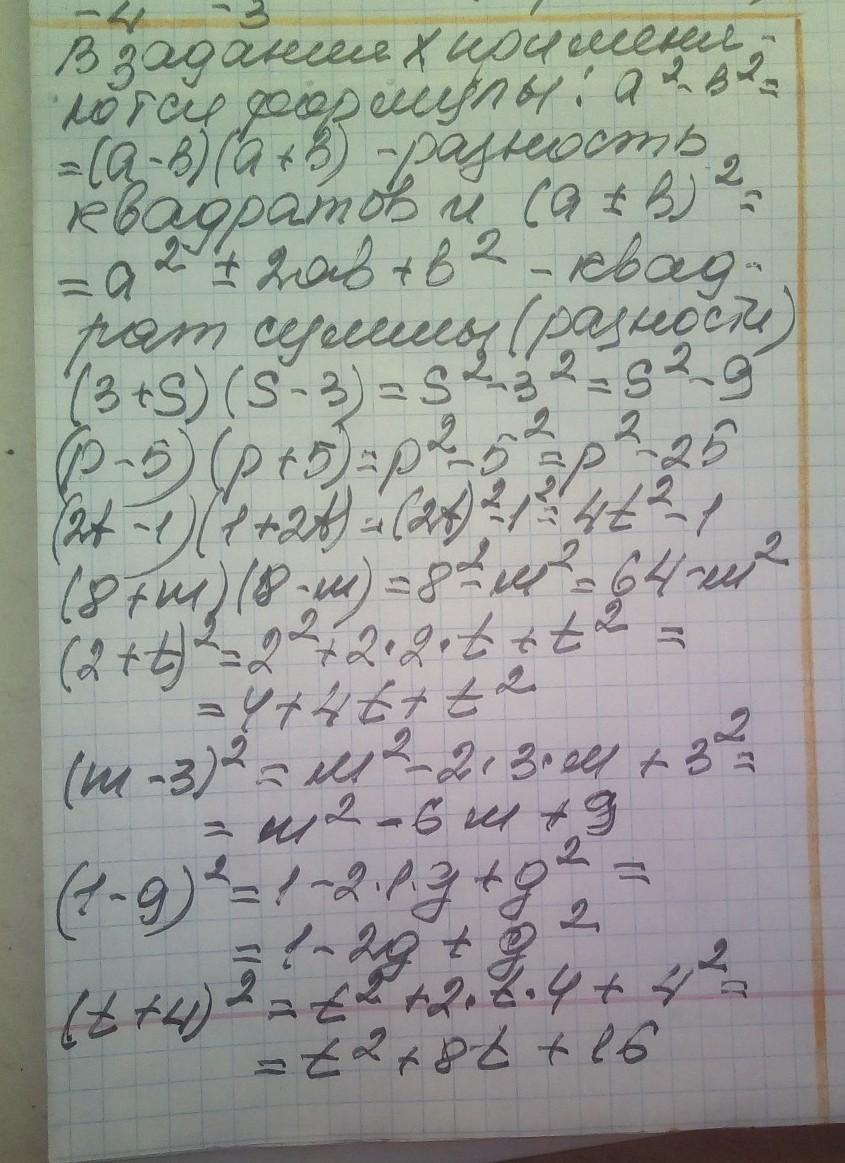 -4 -3
В задании X применя-
ются формулы: a²-в²=
=(a-в)(a+в) -разность
квадратов и (a ± b)²=
=a² ± 2ab+b² -квад-
рат суммы (разности)
(3+S)(S-3)=S²-3²=S²-9
(p-5)(p+5)=p²-5²=p²-25
(2t-1)(1+2t)=(2t)²-1²=4t²-1
(8+m)(8-m)=8²-m²=64-m²
(2+t)²=2²+2·2·t+t²=
=4+4t+t²
(m-3)²=m²-2·3·m+3²=
=m²-6m+9
(1-g)²=1-2·1·g+g²=
=1-2g+g²
(t+4)²=t²+2·t·4+4²=
=t²+8t+16